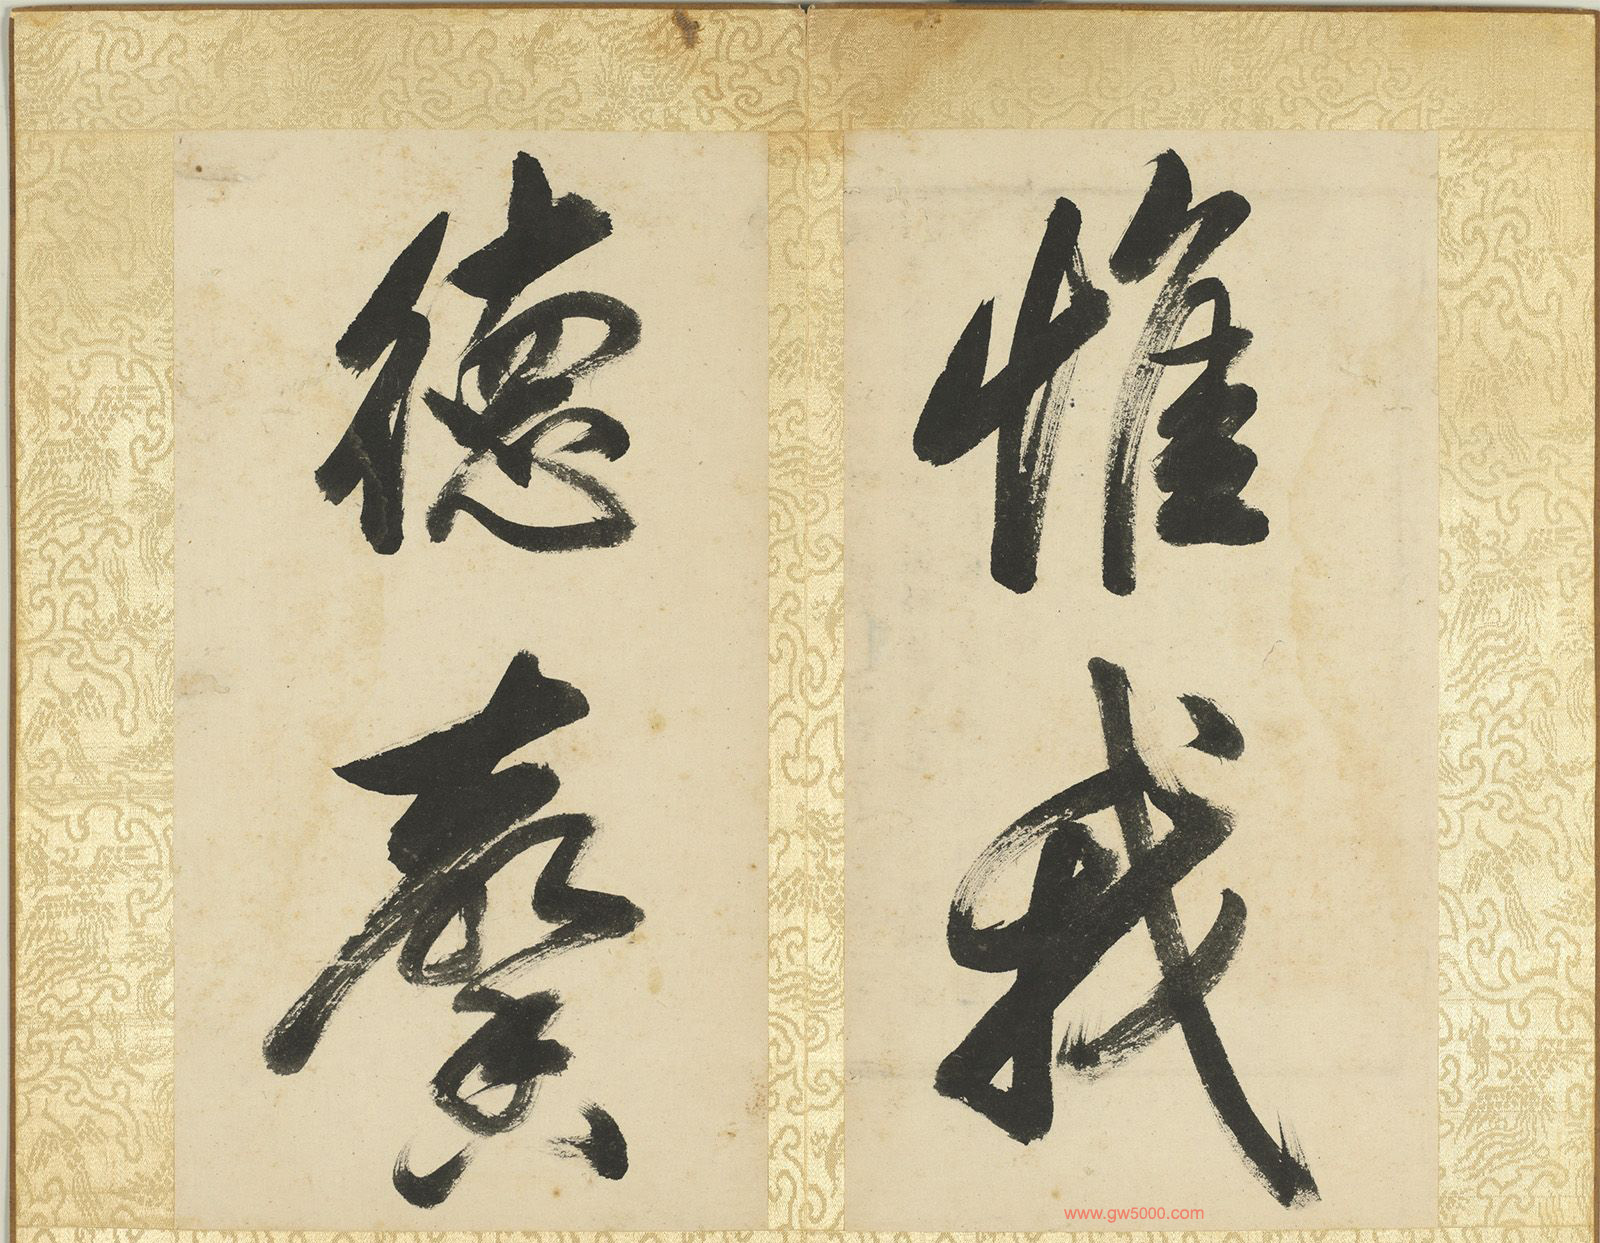 惟我
德馨
www.gw5000.com